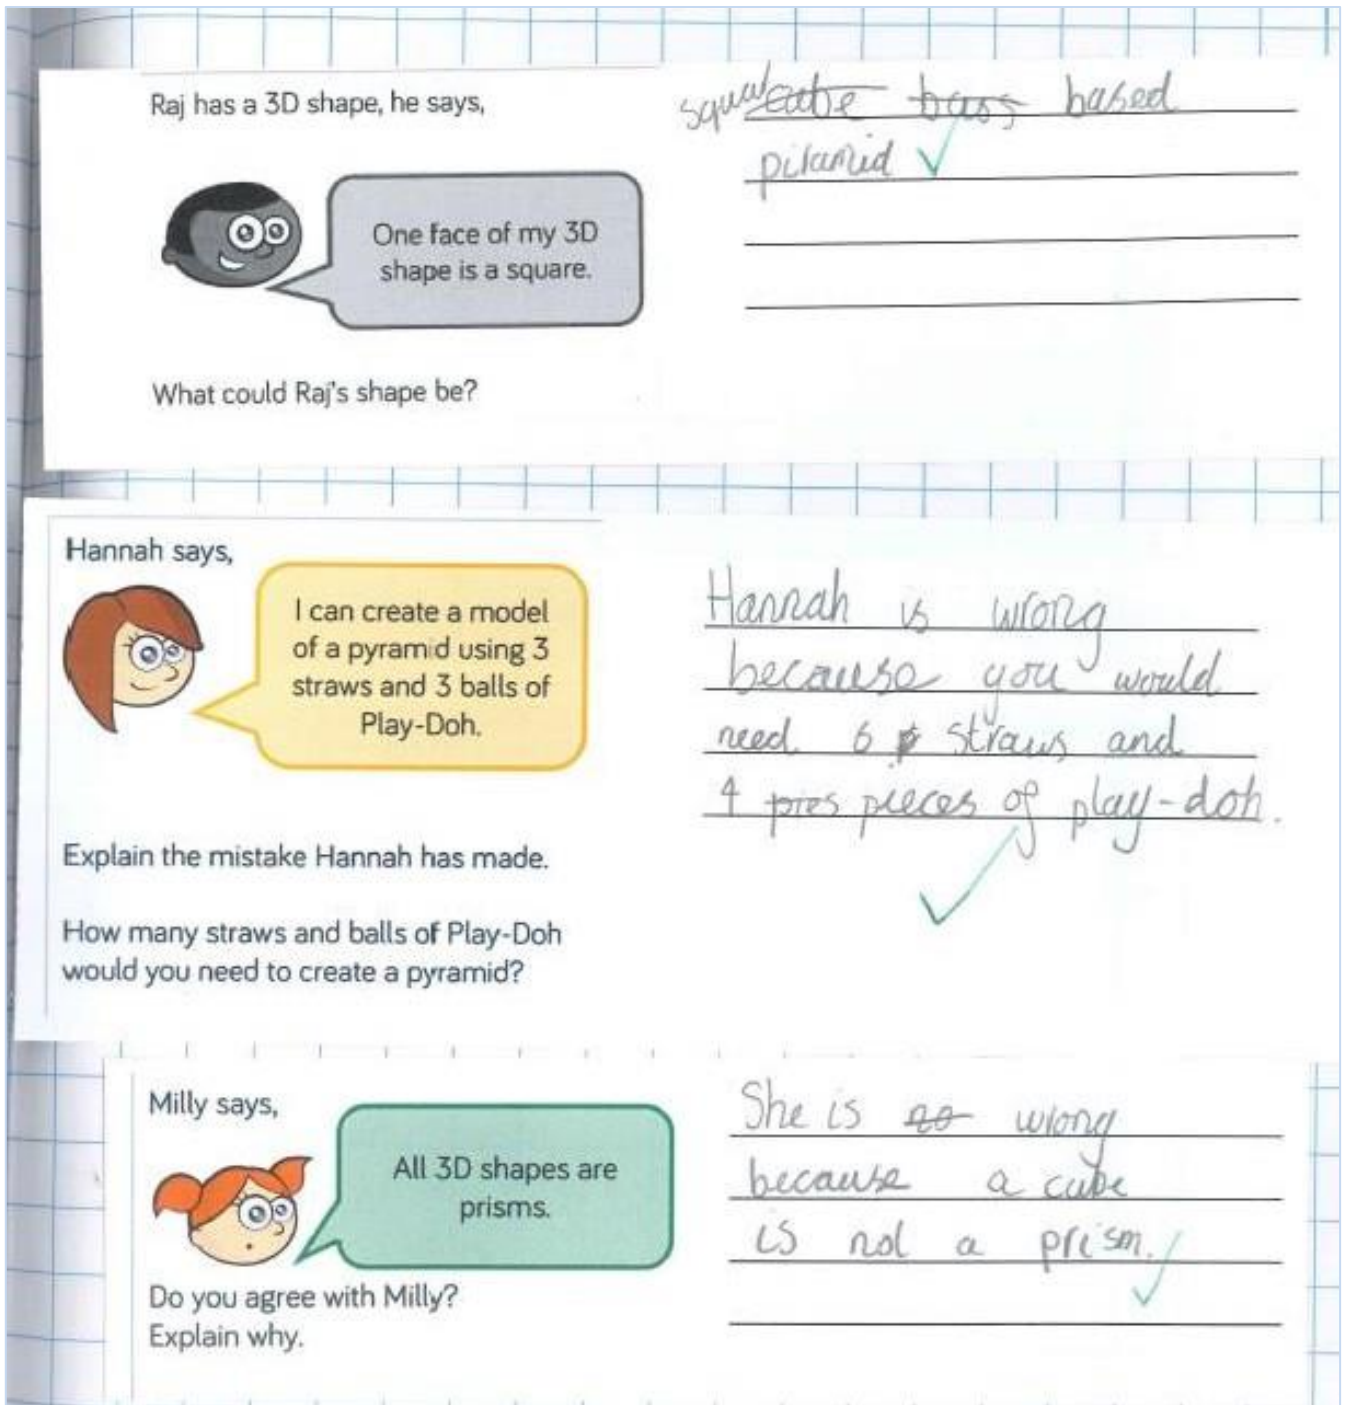 Raj has a 3D shape, he says,
One face of my 3D
shape is a square.
What could Raj's shape be?
squar cube bass based
piramid
Hannah says,
I can create a model
of a pyramid using 3
straws and 3 balls of
Play-Doh.
Explain the mistake Hannah has made.
How many straws and balls of Play-Doh
would you need to create a pyramid?
Hannah is wrong
because you would
need 6 straws and
4 pies pieces of play-doh.
Milly says,
All 3D shapes are
prisms.
Do you agree with Milly?
Explain why.
She is no wrong
because a cube
is not a prism.